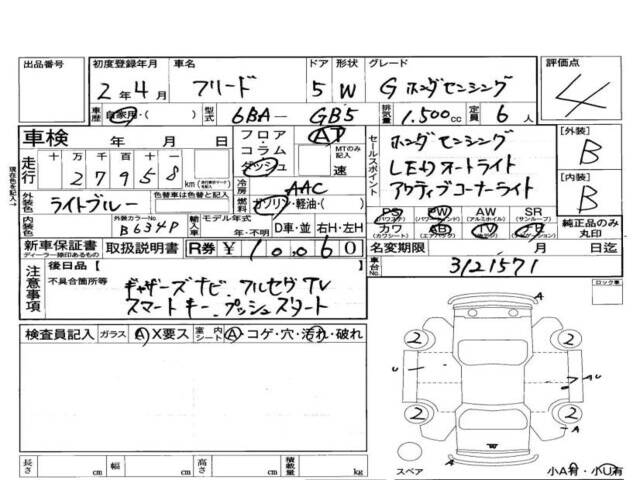 出品番号 初度登録年月 車名 ドア 形状 グレード 評価点
2年4月 フリード 5 W G ホンダセンシング 4
車歴 自家用・( ) 型式 6BA- GB5 排気量 1.500cc 定員 6人
車検 年 月 日 フロア・コラム ダッシュ AT MTのみ記入 速 セールスポイント ホンダセンシング [外装] B
走行 十万千百十一 27958 km LEDオートライト
アクティブコーナーライト [内装] B
冷房 AAC
外装色 ライトブルー 色替車は色替と記入 燃料 ガソリン・軽油・( )
PS (パワステ) PW (パワーウィンド) AW (アルミホイル) SR (サンルーフ)
内装色 外装カラーNo. B634P 輸入車 モデル年式 年・不明 D車・並 右H・左H カワ (カワシート) AB (エアバック) TV 純正品のみ丸印
新車保証書 ディーラー捺印あるもの 取扱説明書 R券 ¥10,060 名変期限 月 日迄
注意事項 後日品【 】 車台No. 3121571
不具合箇所等 ギャザーズ ナビ フルセグTV
スマートキー プッシュスタート
ロック車
検査員記入 ガラス A X要ス 室内シート A・コゲ・穴・汚れ・破れ
A
2 2
U A U
2 2
A
長さ cm 幅 cm 高さ cm 積載量 kg
スペア A 小A有・小U有